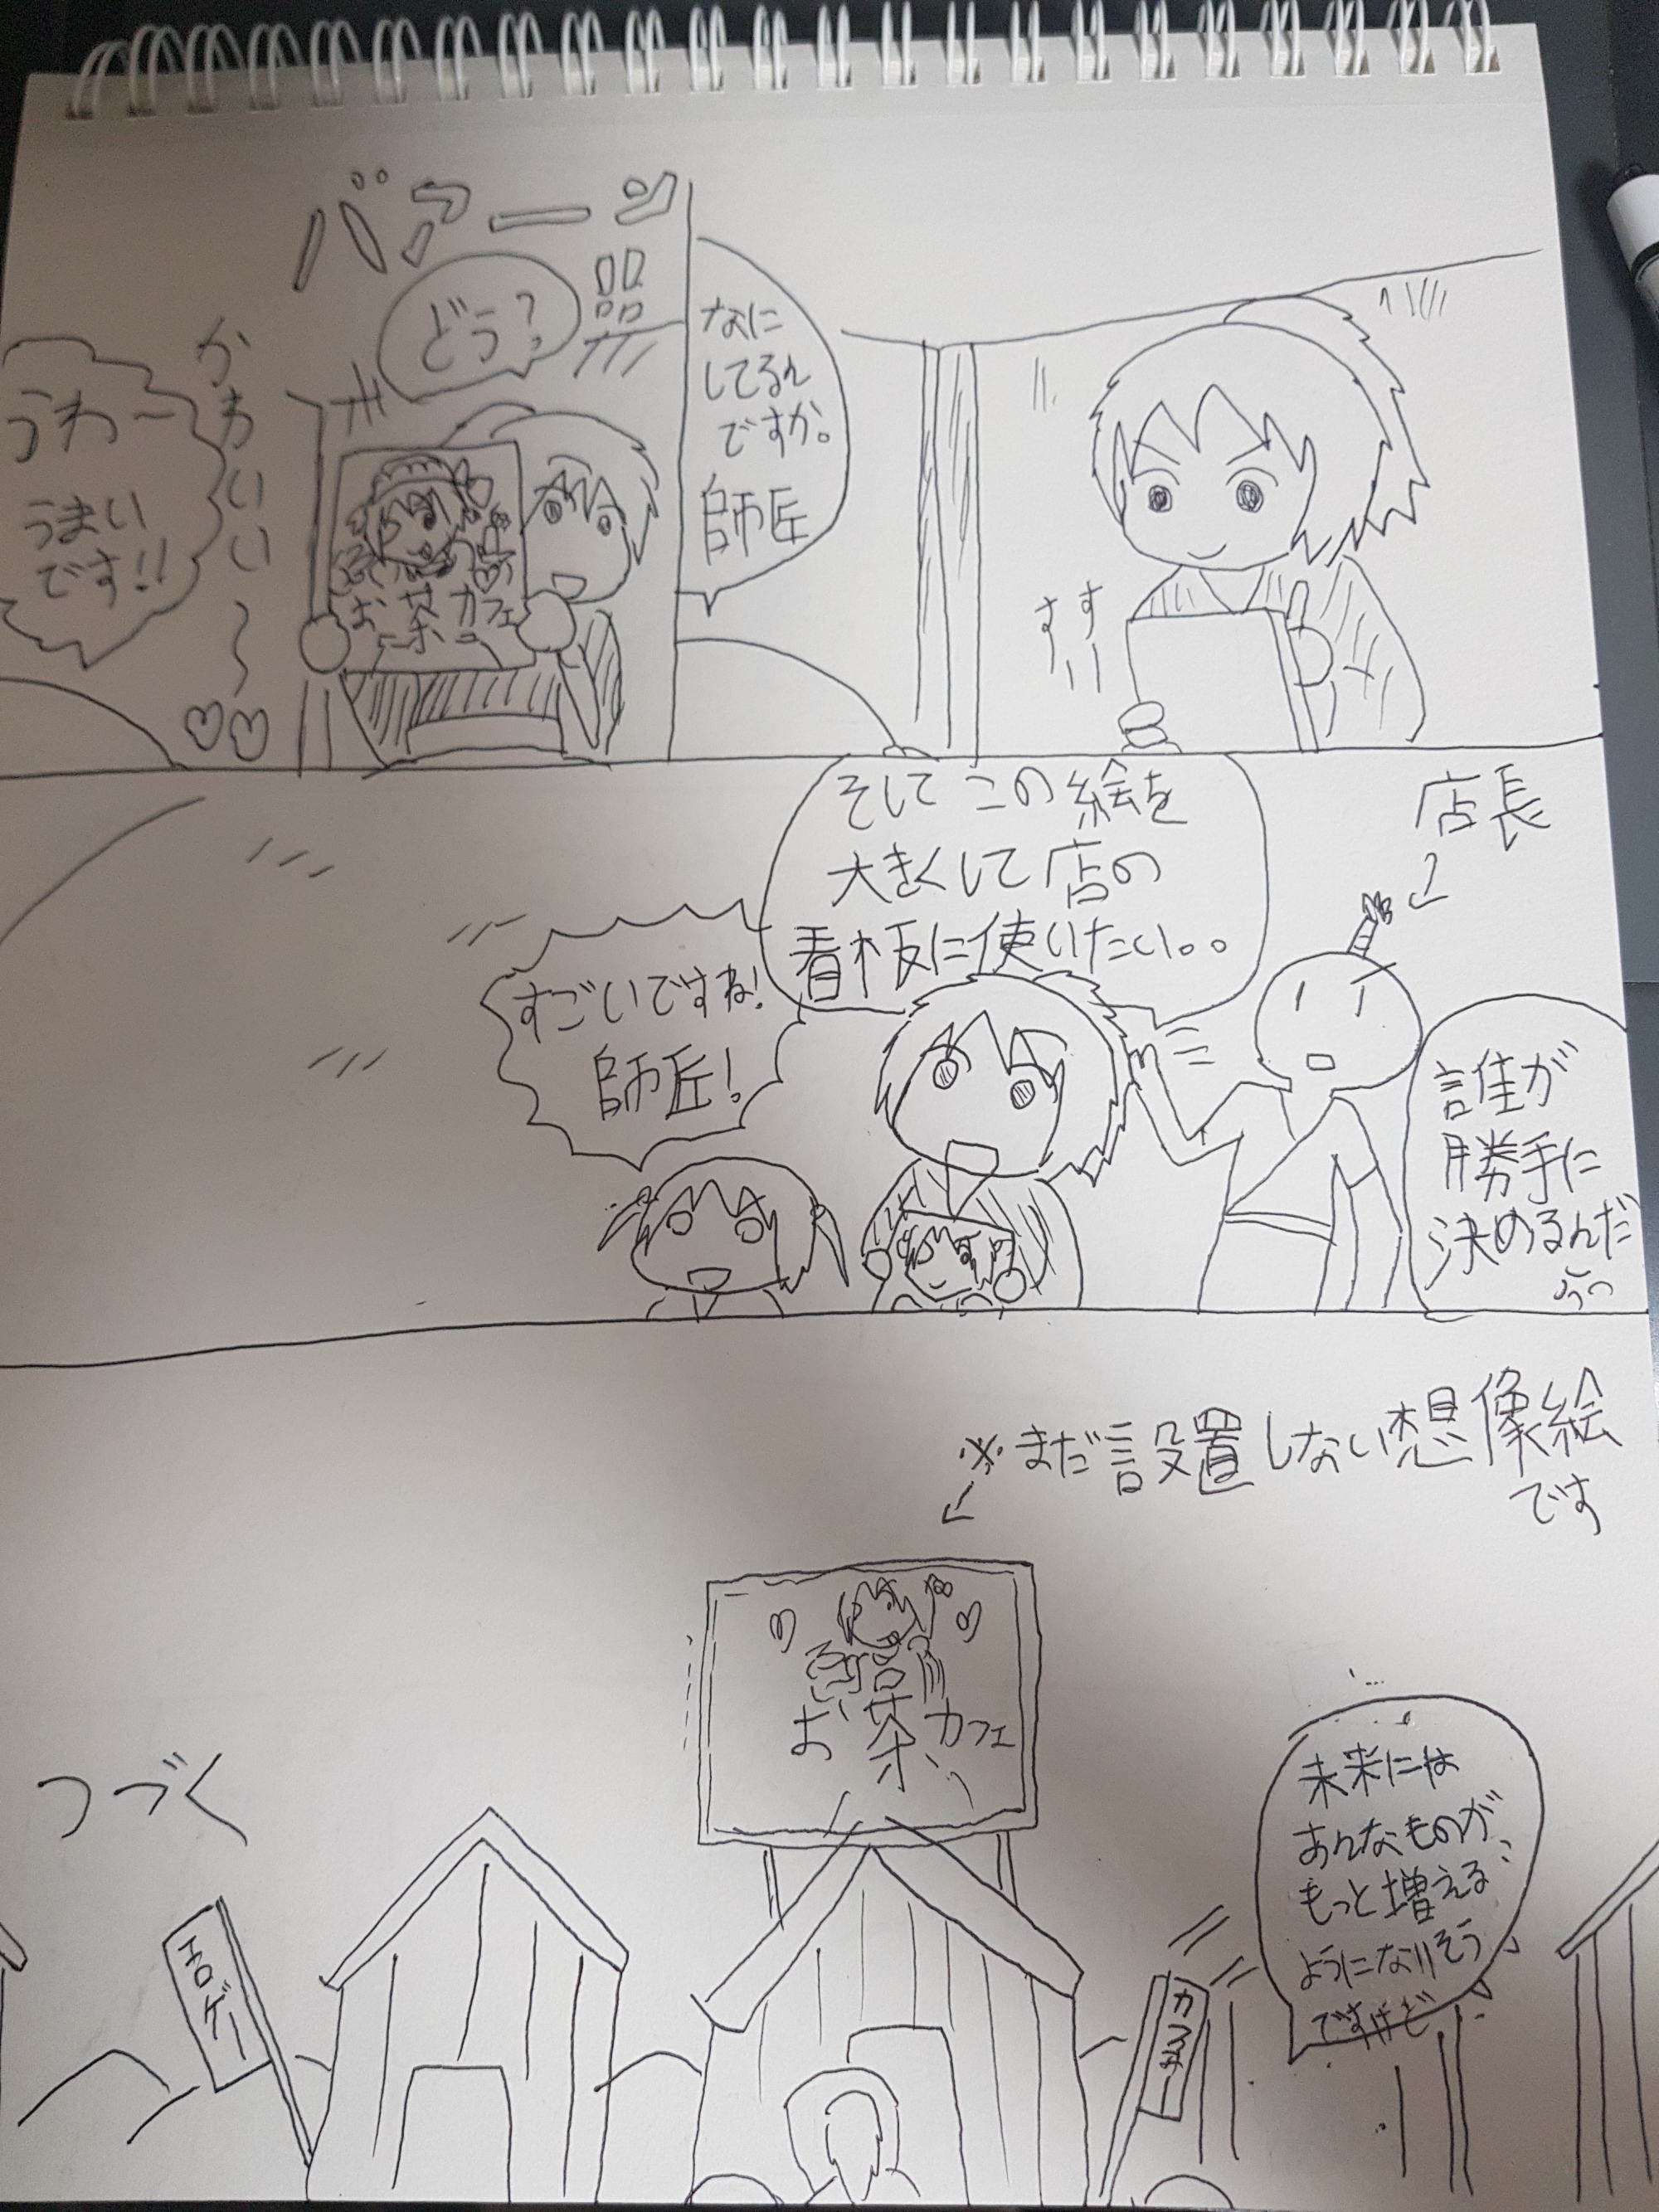 なに
してるん
ですか。
師匠
すす
バァーン
どう?
お茶カフェ
かわいい〜
うわー
うまい
です!!
店長
そしてこの絵を
大きくして店の
看板に使いたい。。
すごいですね!
師匠!
誰が
勝手に
決めるんだ
※まだ設置しない想像絵
です
お茶カフェ
未来には
あんなものが
もっと増える
ようになりそう
ですけど
エロゲー
つづく